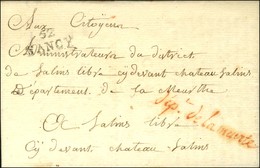 Aux Citoyens
52
NANCY
Administrateurs du district
de Salins libre cy devant chateau Salins
Département de la Meurthe
Dépt. de la meurte
A Salins libre
Cy devant chateau Salins